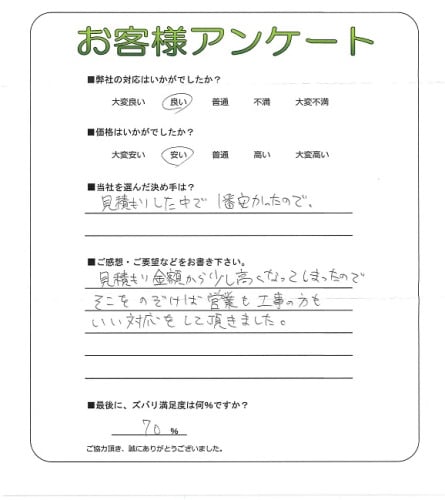 お客様アンケート
■弊社の対応はいかがでしたか？
大変良い 良い 普通 不満 大変不満
■価格はいかがでしたか？
大変安い 安い 普通 高い 大変高い
■当社を選んだ決め手は？
見積もりした中で1番安かったので。
■ご感想・ご要望などをお書き下さい。
見積もり金額から少し高くなってしまったので
そこをのぞけば営業も工事の方も
いい対応をして頂きました。
■最後に、ズバリ満足度は何%ですか？
70 %
ご協力頂き、誠にありがとうございました。